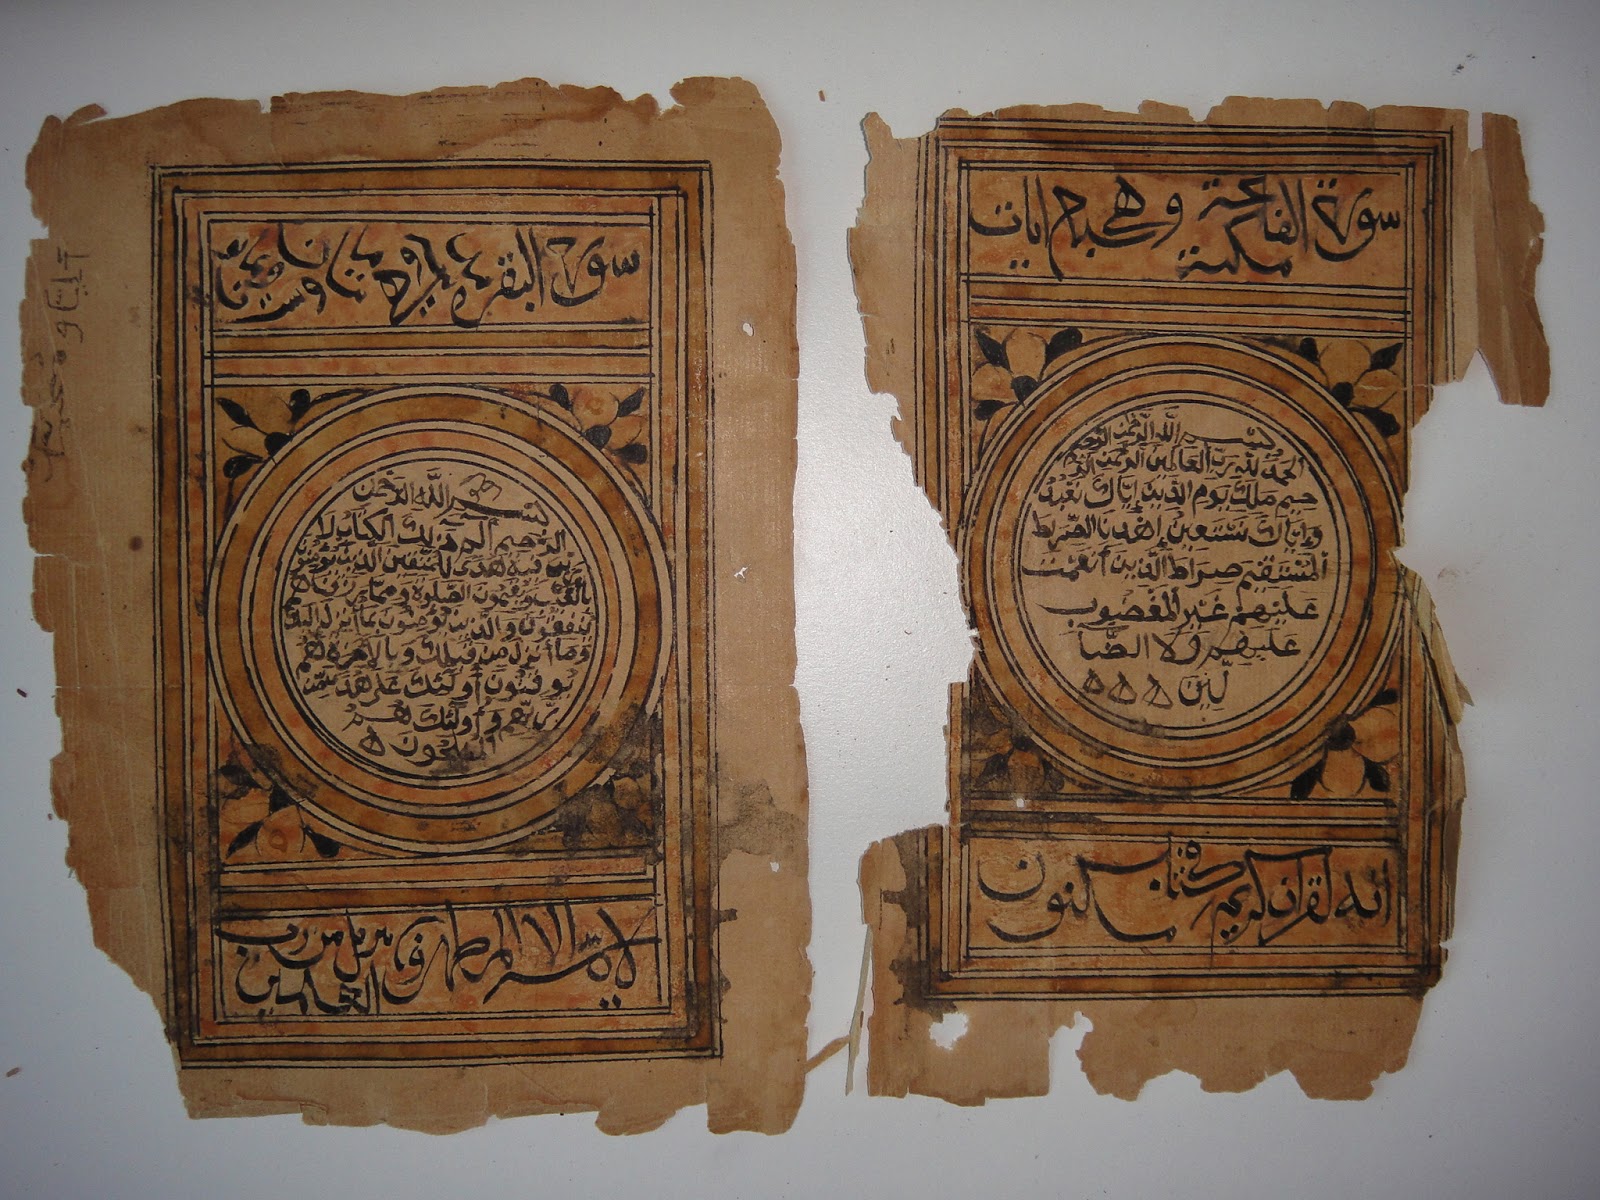 سورة الفاتحة وهي سبع ايات
مكية
بسم الله الرحمن الرحيم
الحمد لله رب العالمين الرحمن الر
حيم ملك يوم الدين إياك نعبد
وإياك نستعين إهدنا الصراط
المستقيم صراط الذين أنعمت
عليهم غير المغضوب
عليهم ولا الضا
لين ه ه ه
انه لقران كريم في كتاب
مكنون
سورة البقرة
بسم الله الرحمن
الرحيم الم ذلك الكتاب لا
ريب فيه هدى للمتقين الذين يؤمنون
بالغيب ويقيمون الصلوة ومما رزقناهم
ينفقون والذين يؤمنون بما أنزل إليك
وما أنزل من قبلك وبالآخرة هم
يوقنون أولئك على هدى من
ربهم وأولئك هم
المفلحون ه
لا يمسه الا المطهرون تنزيل من رب
العالمين